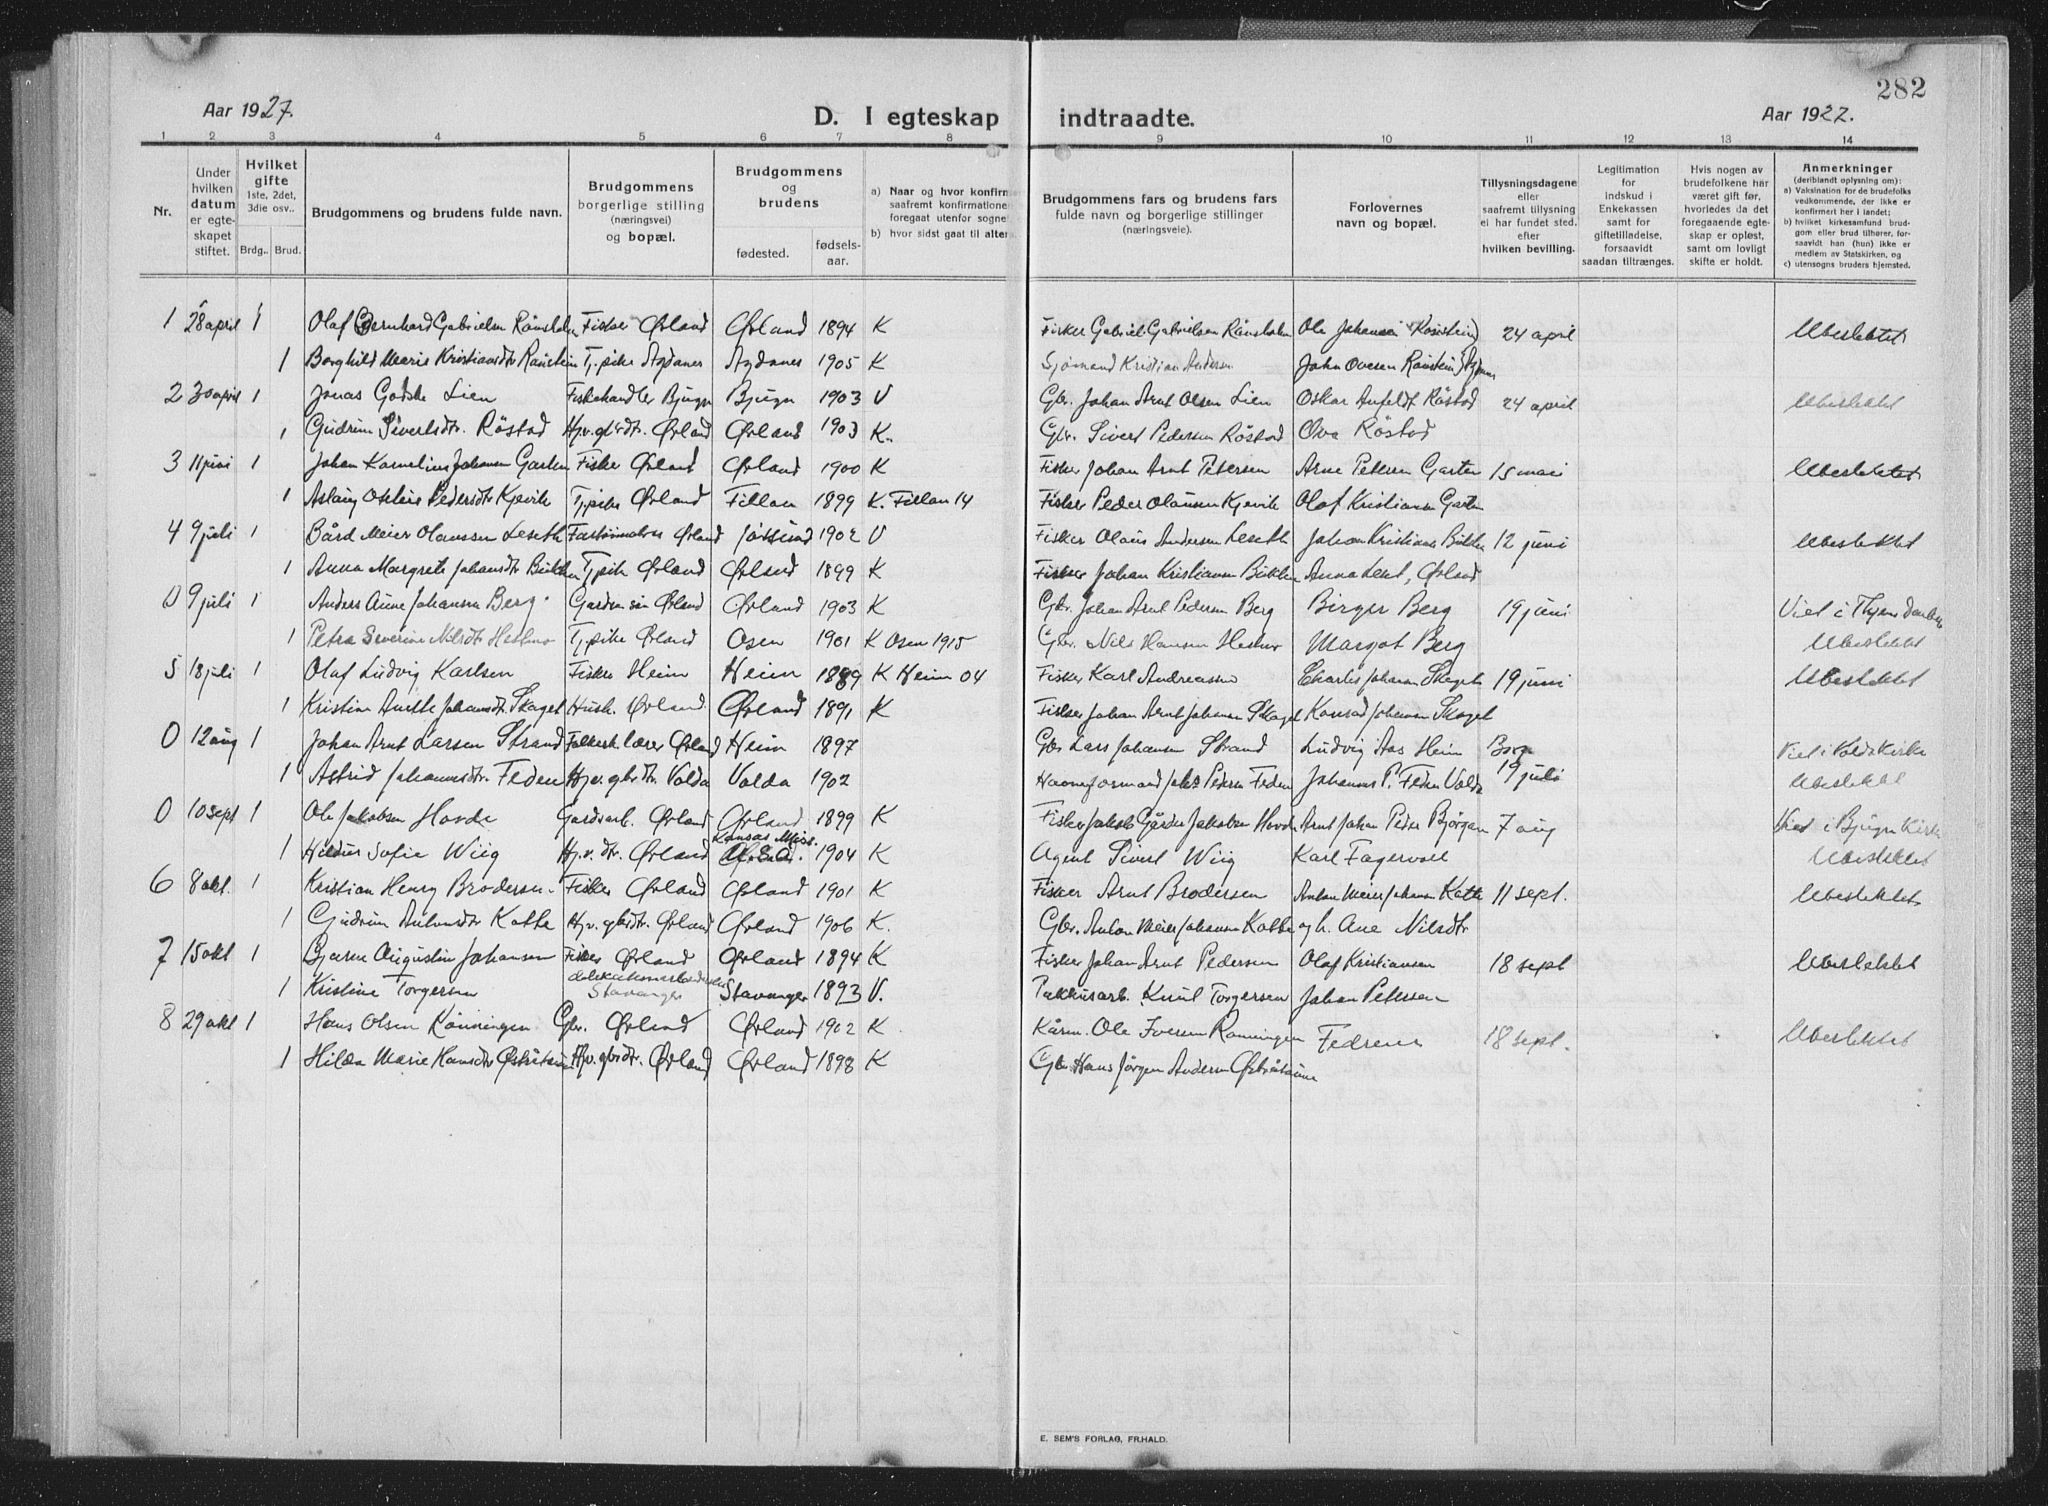 282
Aar 1927.
D. I egteskap indtraadte.
Aar 1927.
1 2 3 4 5 6 7 8 9 10 11 12 13 14
Nr.
Under hvilken datum er egteskapet stiftet.
Hvilket gifte 1ste, 2det, 3die osv..
Brdg.. Brud.
Brudgommens og brudens fulde navn.
Brudgommens borgerlige stilling (næringsvei) og bopæl.
Brudgommens og brudens
fødested. fødsels-aar.
a) Naar og hvor konfirm
saafremt konfirmationen
foregaat utenfor sognet
b) hvor sidst gaat til alters.
Brudgommens fars og brudens fars fulde navn og borgerlige stillinger (næringsveie).
Forlovernes navn og bopæl.
Tillysningsdagene eller saafremt tillysning ei har fundet sted. efter hvilken bevilling.
Legitimation for indskud i Enkekassen samt for giftetilladelse, forsaavidt saadan tiltrænges.
Hvis nogen av brudefolkene har været gift før, hvorledes da det foregaaende egteskap er opløst, samt om lovligt skifte er holdt.
Anmerkninger (deriblandt oplysning om): a) Vaksination for de brudefolks vedkommende, der ikke er konfirmert her i landet; b) hvilket kirkesamfund brudgom eller brud tilhører, forsaavidt han (hun) ikke er medlem av Statskirken, og c) utensogns bruders hjemsted.
1 28 april 1 Olaf Bernhard Gabrielsen Fisker Ørland Ørland 1894 K Fisker Gabriel Gabrielsen Ole Johansen 24 april Ubeslektet
1 Borghild Marie Kristiansdtr Tj.pike Agdanes Agdanes 1905 K Sjømand Kristian Andersen John Ovesen
2 30 april 1 Jonas Lien Fiskehandler Bjugn Bjugn 1903 V Gbr. Johan Arnt Olsen Lien Oskar Anfeldt Røstad 24 april Ubeslektet
1 Gudrun Sivertsdtr. Røstad Hj.v. gbrdtr. Ørland Ørland 1903 K. Gbr. Sivert Pedersen Røstad Ova Røstad
3 11 juni 1 Johan Kornelius Johansen Garten Fisker Ørland Ørland 1900 K Fisker Johan Arnt Petersen Arne Petersen Garten 15 mai Ubeslektet
1 Aslaug Pedersdtr Kjevik Tj.pike Ørland Fillan 1899 K. Fillan 14 Fisker Peder Olausen Kjevik Olaf Kristiansen Garten
4 9 juli 1 Bård Meier Olaussen Leseth Ørland Jøssund 1902 V Fisker Olaus Andersen Leseth Johan Kristiansen 12 juni Ubeslektet
1 Anna Margrete Johansdtr Tj.pike Ørland Ørland 1899 K Fisker Johan Kristiansen Anna Leset, Ørland
0 9 juli 1 Anders Aune Johansen Berg. Ørland Ørland 1903 K Gbr. Johan Arnt Pedersen Berg Birger Berg 19 juni Viet i
1 Petra Severine Nilsdtr Tj.pike Ørland Osen 1901 K Osen 1915 Gbr. Nils Hansen Margot Berg Ubeslektet
5 18 juli 1 Olaf Ludvig Karlsen Fisker Heim Heim 1889 K Heim 04 Fisker Karl Andreassen Charles Johansen Skaget 19 juni Ubeslektet
1 Kristine Johansdtr. Skaget Hush. Ørland Ørland 1891 K Fisker Johan Arnt Johansen Skaget Konrad Johansen Skaget
0 12 aug 1 Johan Arnt Larsen Strand Folkesk.lærer Ørland Heim 1897 Gbr Lars Johansen Strand Ludvig Aas Heim Borg. Viet i Volda Kirke
1 Astrid Johannesdtr. Feden Hj.v. gbrdtr. Volda Volda 1902 Havneformand Johs Pedersen Feden Johannes P. Feden Volda 19 juli Ubeslektet
0 10 sept 1 Ole Jakobsen Hovde Gardsarb. Ørland Ørland 1899 K Fisker Jakob Jakobsen Hovde Arnt Johan Peder Bjørgan 7 aug Viet i Bjugn Kirke
1 Hildur Sofie Wiig Hj.v. dtr. Ørland Kansas 1904 K Agent Sivert Wiig Karl Fagervoll Ubeslektet
6 8 okt. 1 Kristian Henry Brodersen. Fisker Ørland Ørland 1901 K Fisker Arnt Brodersen Anton Meier Johansen 11 sept. Ubeslektet
1 Gudrun Antonsdtr Hj.v. gbrdtr. Ørland Ørland 1906 K. Gbr. Anton Meier Johansen og h. Ane Nilsdtr
7 15 okt 1 Bjarne Augustin Johansen Fisker Ørland Ørland 1894 K Fisker Johan Arnt Pedersen Olaf Kristiansen 18 sept Ubeslektet
1 Kristine Torgersen Stavanger Stavanger 1893 V. Pakkhusarb. Knut Torgersen Johan Petersen
8 29 okt 1 Hans Olsen Rønningen Gbr. Ørland Ørland 1902 K Kårm. Ole Iversen Rønningen Fedrene 18 sept. Ubeslektet
1 Hilda Marie Hansdtr Hj.v. gbrdtr. Ørland Ørland 1898 K Gbr. Hans Jørgen Andersen
E. SEM'S FORLAG, FR.HALD.